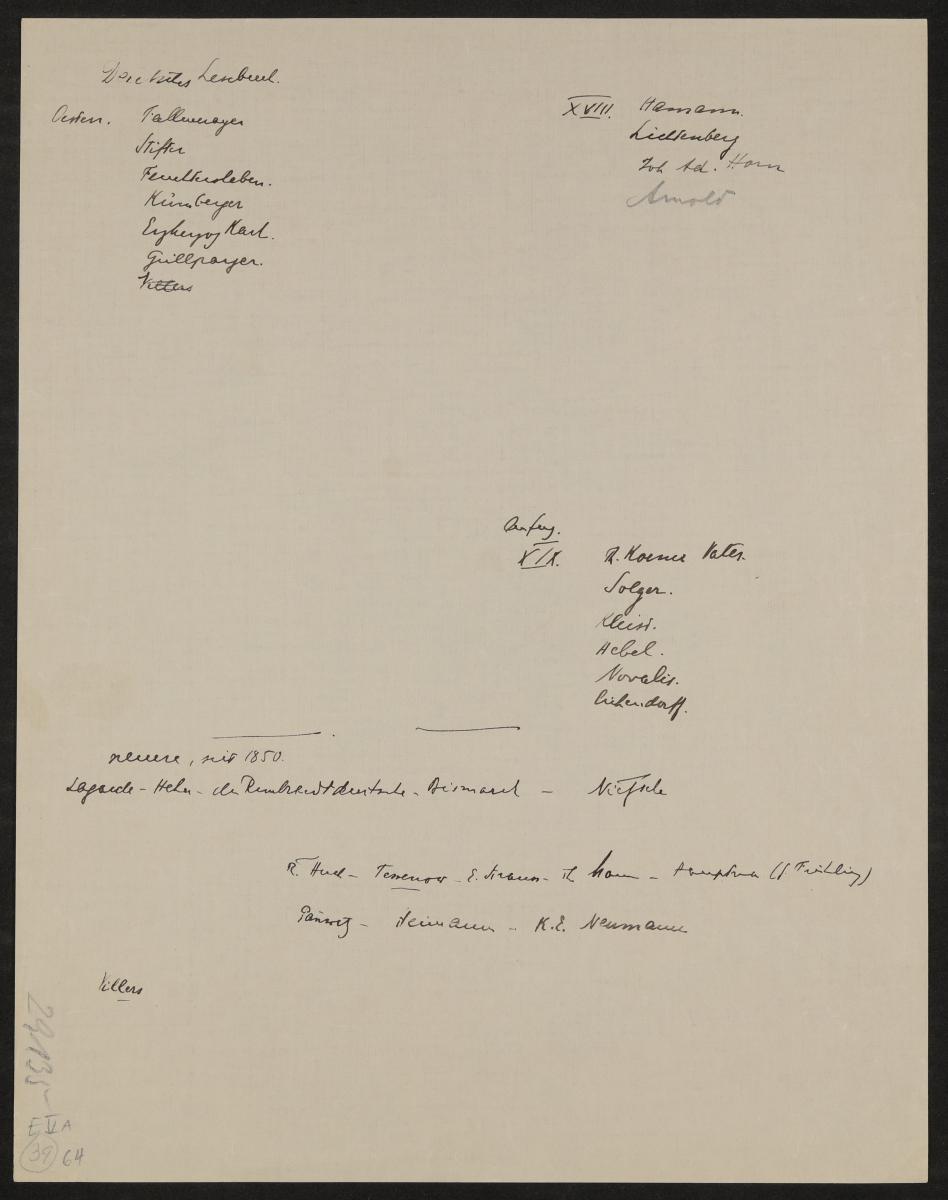 Deutsches Lesebuch.
Oesterr. Fallmerayer
Stifter
Feuchtersleben.
Kürnberger
Erzherzog Karl.
Grillparzer.
Villers
XVIII. Hamann.
Lichtenberg
Joh Ad. Horn
Arnold
Anfang.
XIX. Th. Koerner Vater.
Solger.
Kleist.
Hebel.
Novalis.
Eichendorff.
neuere, seit 1850.
Lagarde – Hehn – der Rembrandtdeutsche – Bismarck – Nietzsche
R. Huch – Tessenow – E. Strauss – Th Mann – Hauptmann (Frühling)
Pannwitz – Heimann – K.E. Neumann
Villers
29.135
E V A
39 64